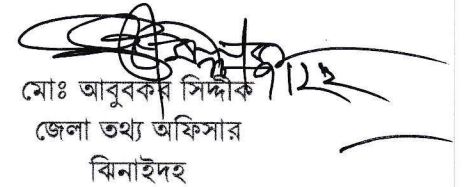 মোঃ আবুবকর সিদ্দীক
জেলা তথ্য অফিসার
ঝিনাইদহ